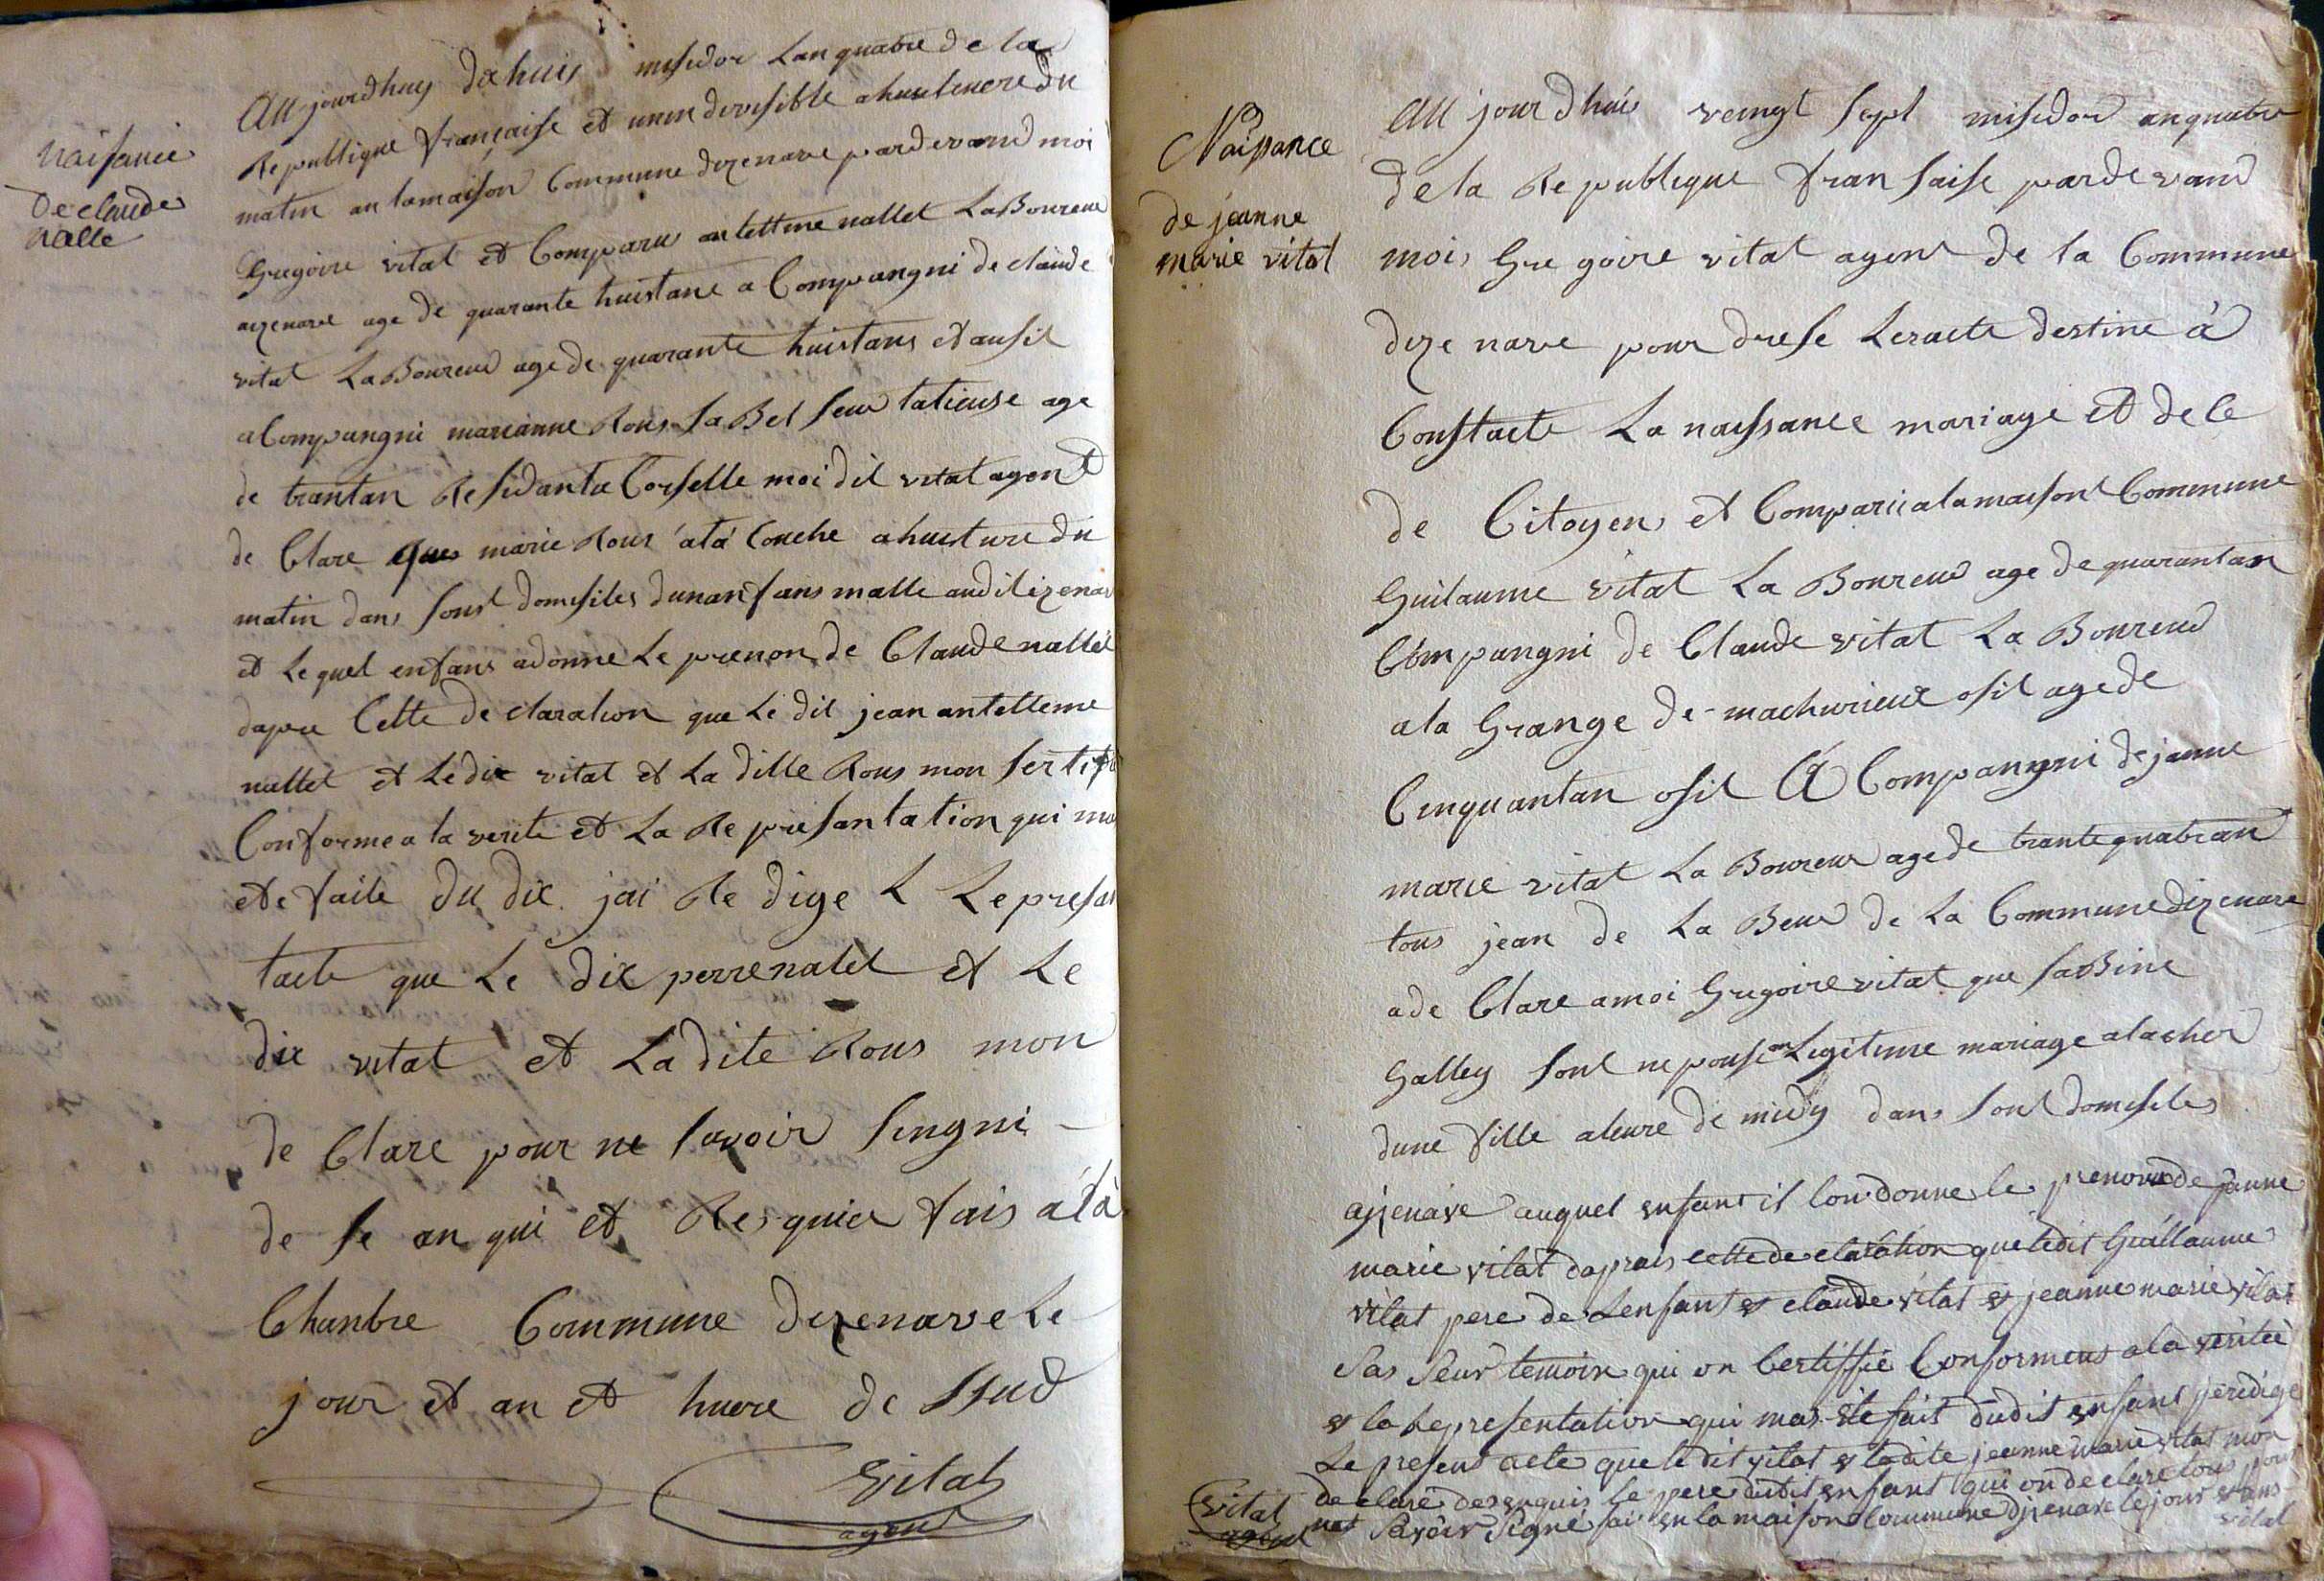 naisance
De claude
nalle
Au jourdhuy dix huis mesidor Lan quatre de la
Republique françaisse et unin divisible a huis heure du
matin an la maison Commune dizenave par devand moi
Gregoire vital et Comparu antellme nallet La Boureur
aizenave age de quarante huistans a Compangni de claude
vital La Boureur age de quarante huistans et ausil
a Compangni marianne Rous sa Bel seur tatieuse age
de trantan Residanta Corselle moi dil vital agent
de Clare que marie Rous ata Couche a huist ure du
matin dans sont domesiles dunanfans malle audit izenave
et Le quel enfans a donne Le prenon de Claude nallet
dapre Cette de claration que Le dit jean antelleme
nallet et Le dix vital et La ditte Rous mon sertifi
Conforme a la verite et La Re presantation qui ma
ete faite Du Dix jai Re dige L Le presan
tacte que Le dix perre nalet et Le
dix vital et La dite Rous mon
de Clare pour ne savoir singni
de se an qui et Re quier fais a la
Chanbre Commune dezenave Le
jour et an et huere de ssud
Vital
agent
Naissance
de jeanne
marie vital
Au jour dhuis veingt sept misidor an quatre
de la Re publique fran saise par de vand
moi Gre goire vital agent de la Commune
dize nave pour drese Leracte destine à
Constacte La naissance mariage et de ce
de Citoyen et Comparu a la maisont Commune
Guilaume vital La Boureur age de quarantan
Compangni de Claude vital La Boureur
a la Grange de machurieux osil age de
Cinquantan osil A Compangni de janne
marie vital La Boureur age de trante quatran
tous jean de La Beur de La Commune dizenave
a de Clare a moi Gregoire vital que saBine
Galley sont ne pouse an Legitime mariage a lacher
dune fille a leure de midy dans sont domesiles
ajzenave auquel enfant il lon donne le prenom de janne
marie vital daprais cette de claration que ledit Guillaume
vital pere de Lenfant et claude vital et jeanne marie vital
sas seur temoin qui on Certiffié Conforment a la veritée
et la Representation qui mas ete fait dudit enfant je redige
Le present acte que le dit vital et ladite jeanne marie vital mon
de claré de enquis le pere dudit enfant qui on de clare tous pour
ne savoir signé fai en la maison Commune djzenave le jour et ans
vital
Vital
agent